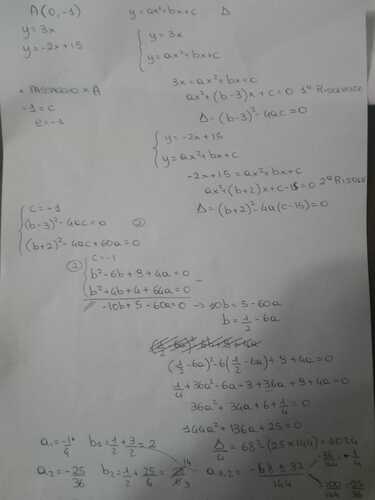 A(0,-1) y=ax²+bx+c Δ
y=3x
y=-2x+15
{ y=3x
y=ax²+bx+c
3x=ax²+bx+c
• PASSAGGIO x A
ax²+(b-3)x+c=0 1ª RISOLVENTE
-1=c
c=-1
Δ=(b-3)²-4ac=0
{ y=-2x+15
y=ax²+bx+c
-2x+15=ax²+bx+c
ax²+(b+2)x+c-15=0 2ª RISOLV
Δ=(b+2)²-4a(c-15)=0
{ c=-1
(b-3)²-4ac=0 ②
(b+2)²-4ac+60a=0
② { c=-1
b²-6b+9+4a=0 -
b²+4b+4+64a=0
-10b+5-60a=0 → 10b=5-60a
b=1/2-6a
(1/2-6a)²-6(1/2-6a)+9+4a=0
1/4+36a²-6a-3+36a+9+4a=0
36a²+34a+6+1/4=0
144a²+136a+25=0
a₁=-1/4 b₁=1/2+3/2=2 Δ/4=68²-(25×144)=1024
a₂=-25/36 b₂=1/2+25/6= 14/3 a₁,₂=(-68±32)/144
-36/144=-1/4
-100/144 -25/36